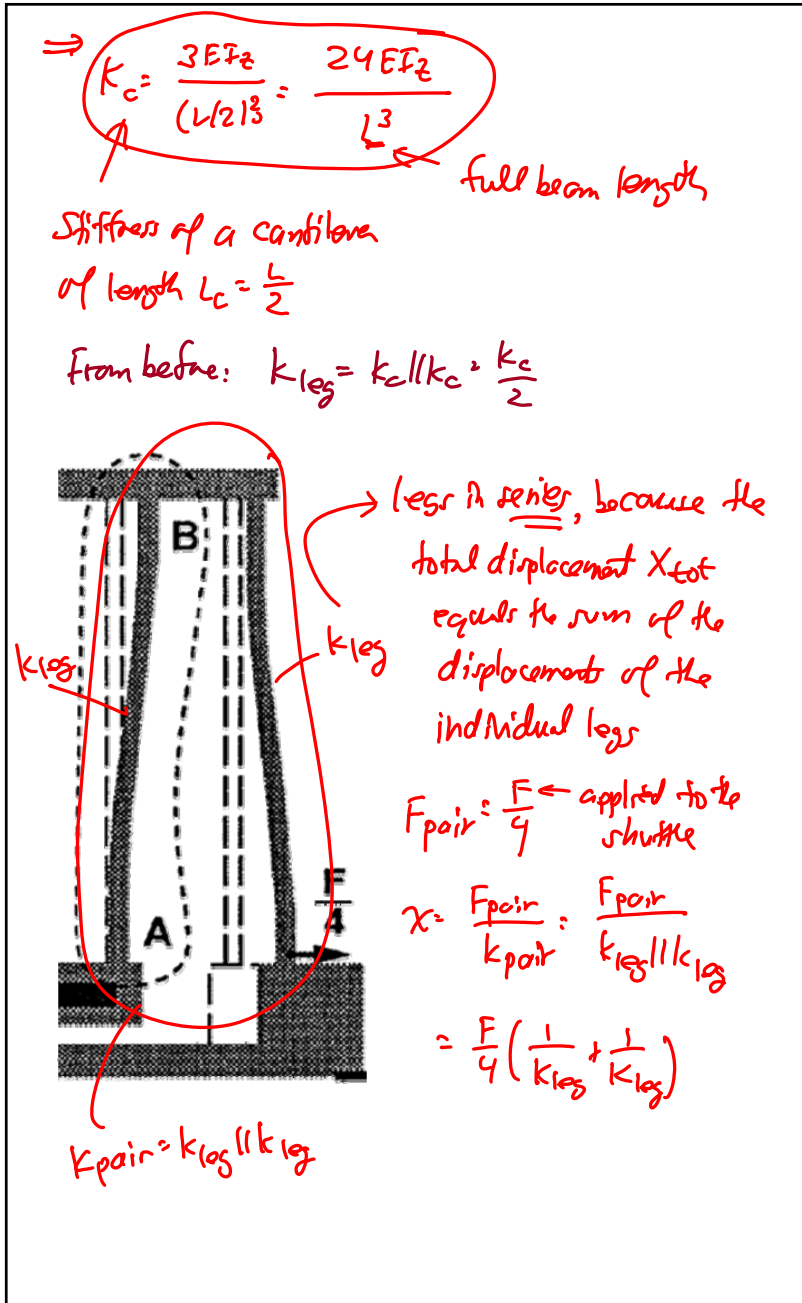 ⇒ K_c = 3EI_z / (L/2)^3 = 24EI_z / L^3
full beam length
Stiffness of a cantilever
of length L_c = L/2
From before: k_leg = k_c || k_c = k_c/2
legs in series, because the
total displacement X_tot
equals the sum of the
displacements of the
individual legs
B
k_leg
k_leg
F_pair = F/4 ← applied to the
shuttle
F/4
A
x = F_pair / k_pair = F_pair / k_leg || k_leg
= F/4 (1/k_leg + 1/k_leg)
K_pair = k_leg || k_leg